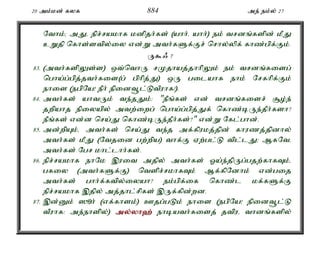 20 அம்மன் கலக 884 அந்நம்ல் 27
வோம்; அது, நிச்சயமாக மனிதர்கள் (யார், யார்) நம் வசனங்களின் மீது
உறுதி கொள்ளவில்லை என்று அவர்களுக்குச் சொல்லிக் காண்பிக்கும்.
ருகூஃ 7
83. (அவர்களிலுள்ள) ஒவ்வொரு சமுதாயத்தாரிலும் நம் வசனங்களைப்
பொய்ப்பித்தவர்களை(ப் பிரித்து) ஒரு படையாக நாம் சேகரிக்கும்
நாளை (நபியே! நீர் நினைவூட்டுவீராக!).
84. அவர்கள் யாவரும் வந்ததும்: "நீங்கள் என் வசனங்களைச் சூழ்ந்
தறியாத நிலையில் அவற்றைப் பொய்ப்பித்துக் கொண்டிருந்தீர்களா?
நீங்கள் என்ன செய்து கொண்டிருந்தீர்கள்?" என்று கேட்பான்.
85. அன்றியும், அவர்கள் செய்து வந்த அக்கிரமத்தின் காரணத்தினால்
அவர்கள் மீது (வேதனை பற்றிய) வாக்கு ஏற்பட்டு விட்டது; ஆகவே,
அவர்கள் பேச மாட்டார்கள்.
86. நிச்சயமாக நாமே இரவை அதில் அவர்கள் ஓய்ந்திருப்பதற்காகவும்,
பகலை (அவர்களுக்கு) வெளிச்சமாகவும் ஆக்கினோம் என்பதை
அவர்கள் பார்க்கவில்லையா? நம்பிக்கை கொண்ட மக்களுக்கு
நிச்சயமாக இதில் அத்தாட்சிகள் இருக்கின்றன.
87. இன்னும் ஸூர் (எக்காளம்) ஊதப்படும் நாளை (நபியே! நினைவூட்டு
வீராக: அந்நாளில்) அல்லாஹ் நாடியவர்களைத் தவிர, வானங்களில்